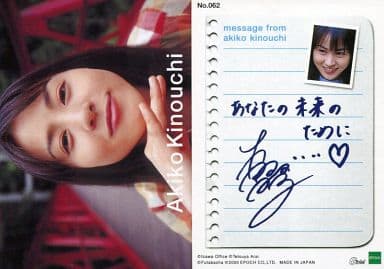 Akiko Kinouchi
No.062
message from
akiko kinouchi
あなたの未来の
ために
‥‥♡
©Izawa Office ©Tetsuya Arai
©Futabasha ©2000 EPOCH CO.,LTD. MADE IN JAPAN